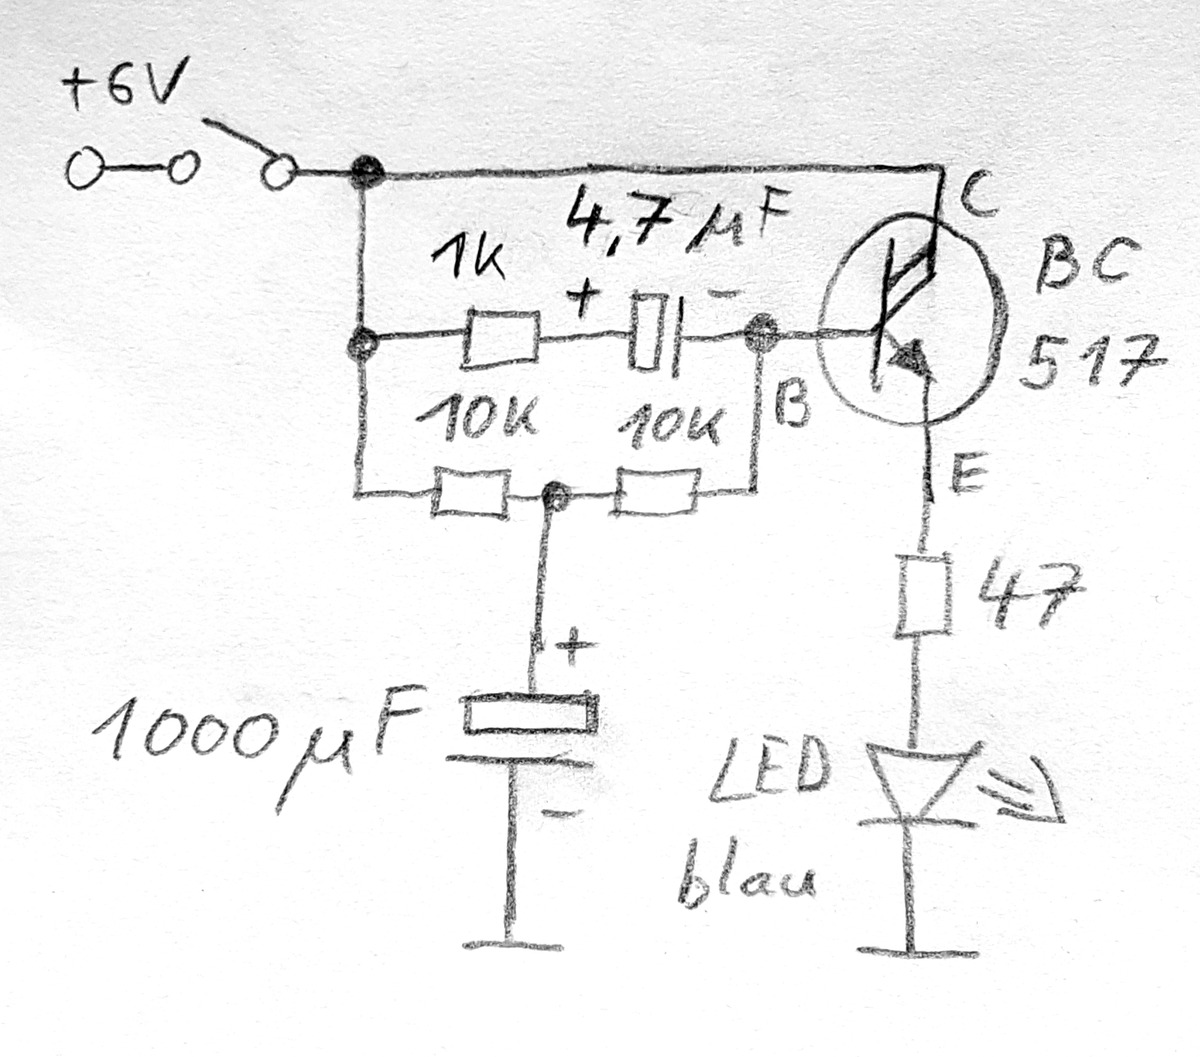 +6V
4,7 µF
C
1K
BC
+ -
517
10K 10K
B
E
47
+
1000 µF
LED
-
blau